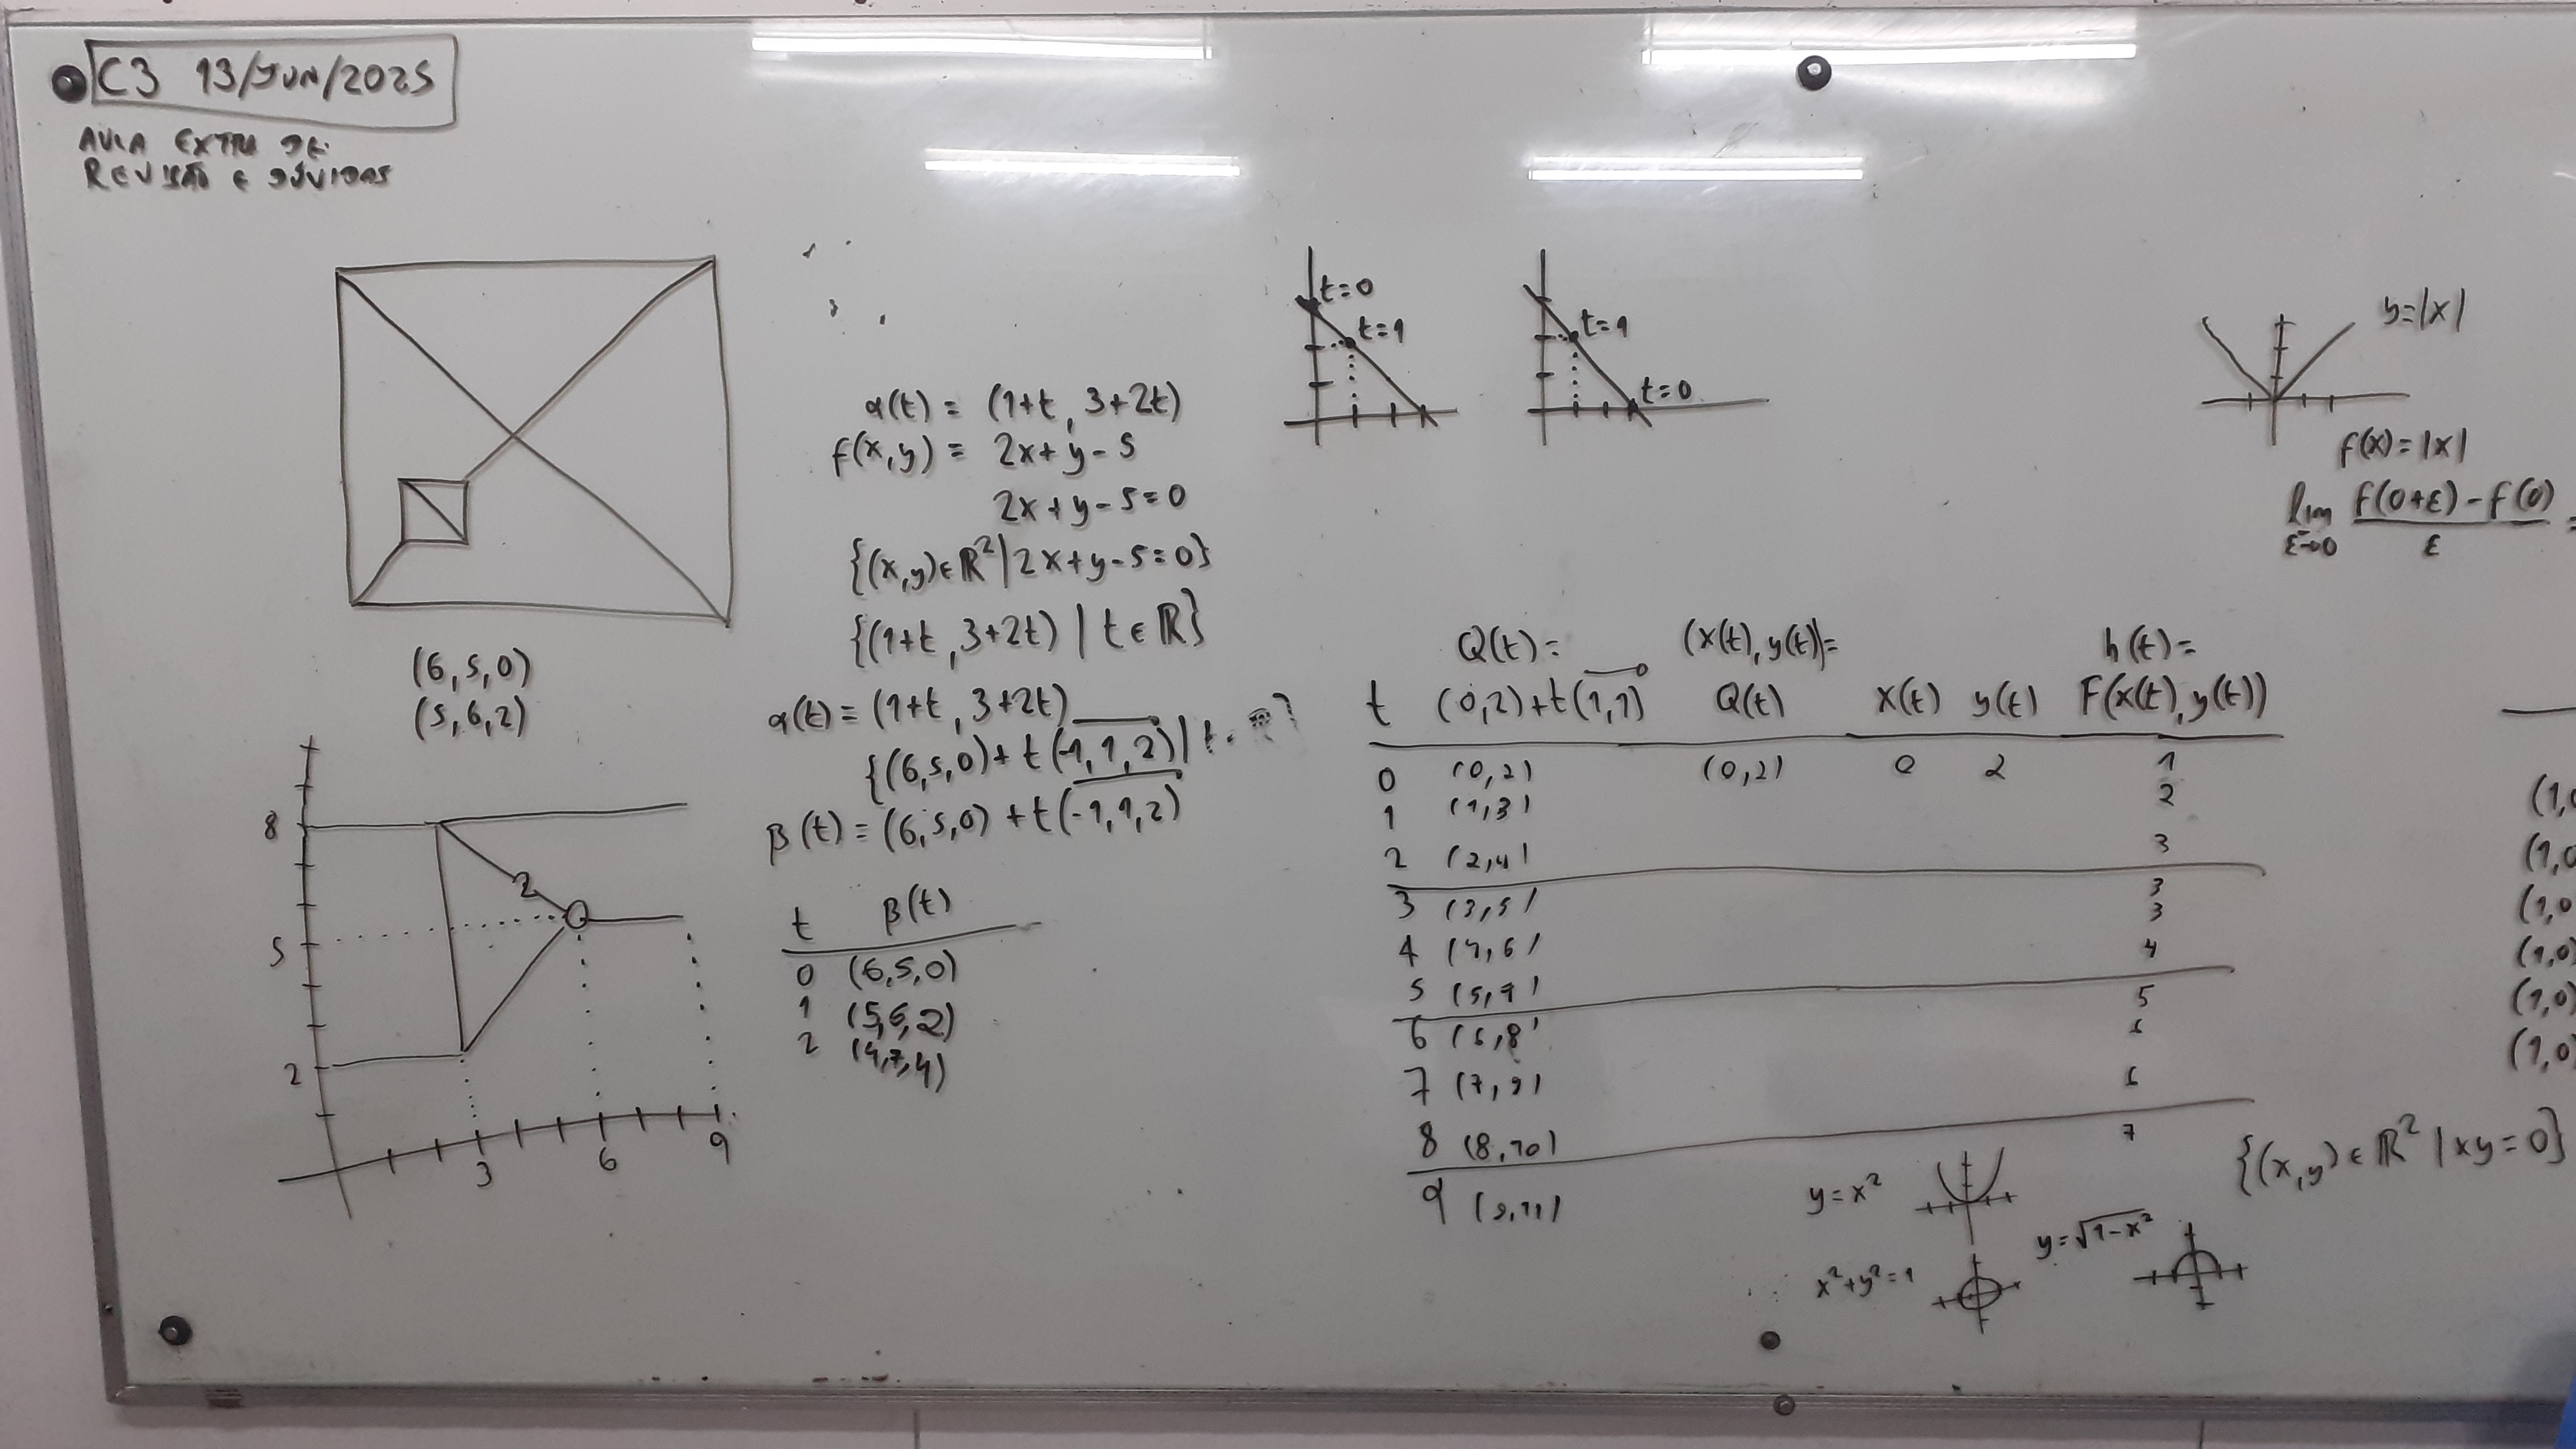 C3 13/JUN/2025
AULA EXTRA DE
REVISÃO E DÚVIDAS
(6,5,0)
(5,6,2)
8
5
2
2
3 6 9
α(t) = (1+t, 3+2t)
f(x,y) = 2x+y-5
2x+y-5=0
{(x,y)∈ℝ²|2x+y-5=0}
{(1+t,3+2t) | t∈ℝ}
α(t) = (1+t, 3+2t)
{(6,5,0)+t(-1,1,2)| t
β(t) = (6,5,0)+t(-1,1,2)
t β(t)
0 (6,5,0)
1 (5,6,2)
2 (4,7,4)
t=0
t=1
t=1
t=0
y=|x|
f(x)=|x|
lim f(0+ε)-f(0)
ε→0 ε =
Q(t)= (x(t),y(t))= h(t)=
t (0,2)+t(1,1) Q(t) x(t) y(t) F(x(t),y(t))
0 (0,2) (0,2) 0 2 1
1 (1,3) 2
2 (2,4) 3
3
3 (3,5) 3
4 (4,6) 4
5 (5,7)
5
6 (6,8) 6
7 (7,9) 6
8 (8,10) 7
9 (9,11)
(1,0
(1,0
(1,0
(1,0)
(1,0)
(1,0)
{(x,y)∈ℝ²|xy=0}
y=x²
y=√1-x²
x²+y²=1